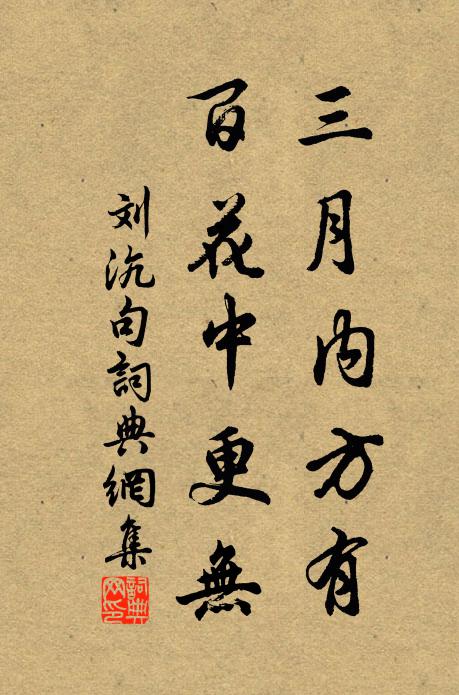 三月内方有
百花中更無
刘沆句詞典網集
詞典
网印